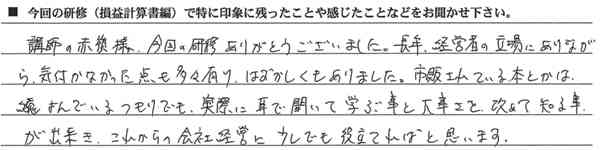 ■ 今回の研修（損益計算書編）で特に印象に残ったことや感じたことなどをお聞かせ下さい。
講師の赤援様、今回の研修ありがとうございました。長年、経営者の立場にありなが
ら、気付かなかった点も多々有り、はずかしくもありました。市販されている本とかは、
よんでいるつもりでも、実際に耳で聞いて学ぶ事と大事さを、改めて知る事
が出来き、これからの会社経営に少しでも役立てればと思います。